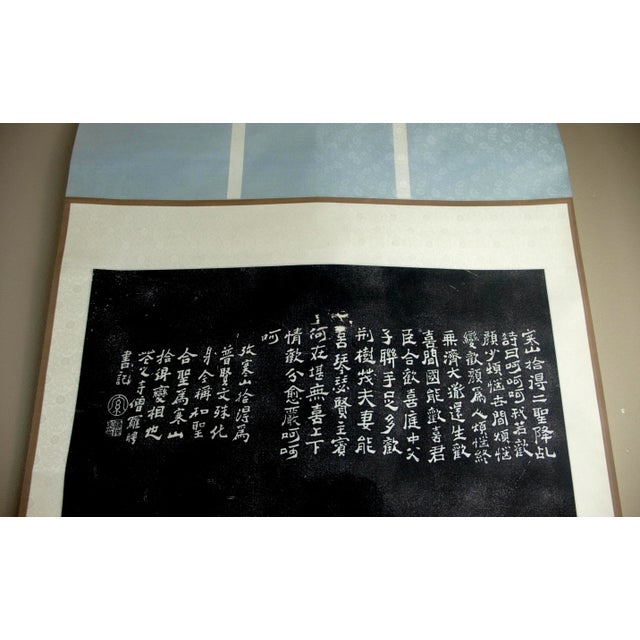 寒山拾得二聖降乩
詩曰呵呵呵我若歡
顏少煩惱世間煩惱
變歡顏為人煩惱終
無濟大道還生歡
喜間國能歡喜君
臣合歡喜庭中父
子聯手足多歡
荊樹茂夫妻能
喜琴瑟賢主賓
何在堪無喜上下
情歡分愈嚴呵呵
呵
攷寒山拾得為
普賢文殊化
身今稱和聖
合聖為寒山
拾得變相也
寒山寺僧
書記